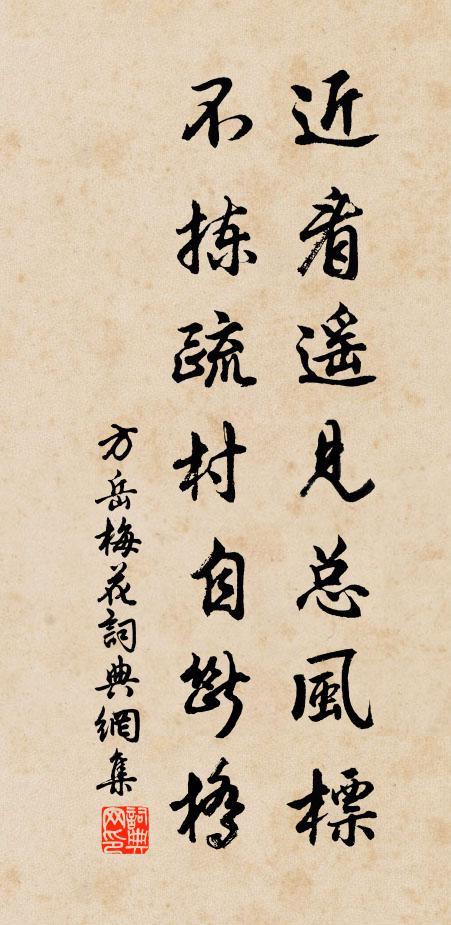 近看遥見总風標
不拣疏村自断橋
方岳梅花詞典網集
詞典网印